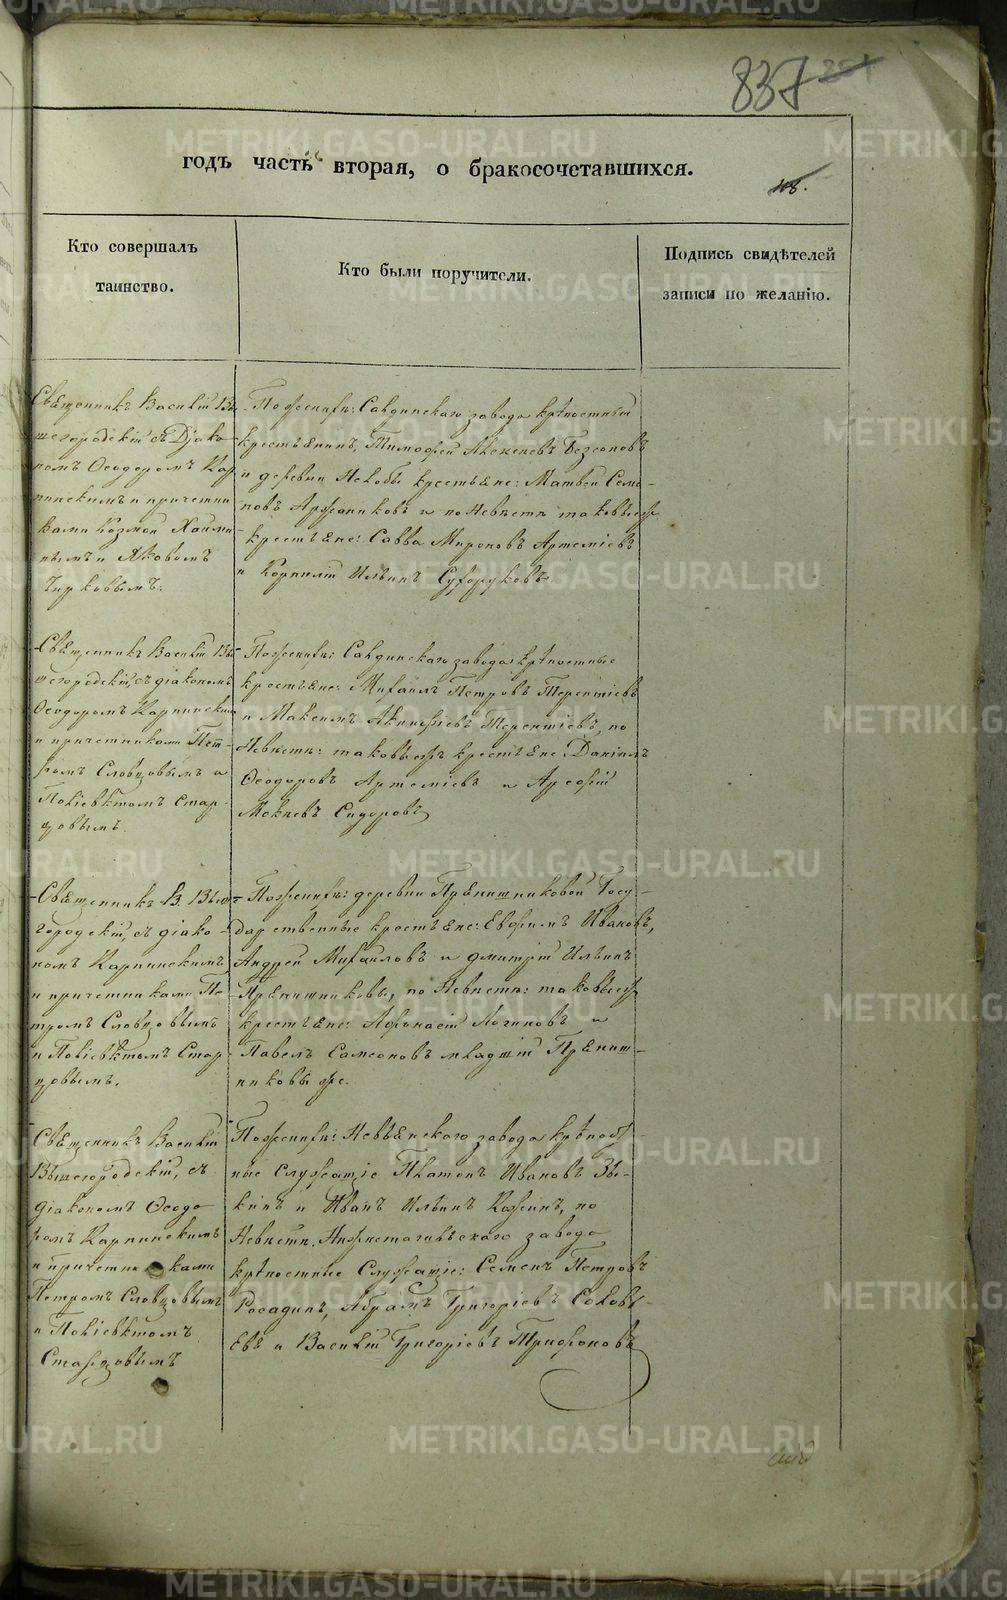 837
годъ часть вторая, о бракосочетавшихся.
Кто совершалъ
таинство.
Кто были поручители.
Подпись свидѣтелей
записи по желанію.
Священникъ Василій Вы-
шегородскій съ Діако-
номъ Ѳеодоромъ Кар
пинскимъ и причетни
ками Козмой
нымъ и Яковомъ
Чирковымъ.
По женихѣ: Салдинскаго завода крѣпостный
крестьянинъ, Тимофей Алексѣевъ
и деревни крестьяне: Матвей Семе-
новъ и по Невѣстѣ таковыежъ
крестьяне: Савва Мироновъ Артеміевъ
и Корнилій Ильинъ Сухоруковъ.
Священникъ Василій Вы
шегородскій, съ діакономъ
Ѳеодоромъ Карпинским
и причетниками Пет-
ромъ Словцовымъ и
Поліевктомъ Стар-
цовымъ.
По женихѣ: Салдинскаго завода крѣпостные
крестьяне: Михаилъ Петровъ Терентіевъ
и Максимъ Терентіевъ, по
Невѣстѣ: таковыежъ крестьяне Даніилъ
Ѳеодоровъ Артеміевъ и
Мокѣевъ Сидоровъ
Священникъ В. Выше-
городскій, съ діако-
номъ Карпинскимъ
и причетниками Пе
тромъ Словцовымъ
и Поліевктомъ Стар
цовымъ.
По женихѣ: деревни Прянишниковой Госу-
дарственные крестьяне: Евфимъ Ивановъ,
Андрей Михаиловъ и Дмитрій Ильинъ
Прянишниковы, по Невѣстѣ: таковыежъ
крестьяне: Афонасій Логиновъ и
Павелъ Самсоновъ младшій Пряниш-
никовы же.
Священникъ Василій
Вышегородскій, съ
діакономъ Ѳеодо
ромъ Карпинскимъ
и причетниками
Петромъ Словцовымъ
и Поліевктомъ
Старцовымъ
По женихѣ: Невьянскаго завода крѣпост
ные Служащіе Платонъ Ивановъ Зы-
кинъ и Иванъ Ильинъ Кожинъ, по
Невѣстѣ. Нижнетагильскаго завода
крѣпостные Служащіе: Семенъ Петровъ
Росадинъ, Абрамъ Григоріевъ Соловь-
евъ и Василій Григоріевъ Трифоновъ
METRIKI.GASO-URAL.RU